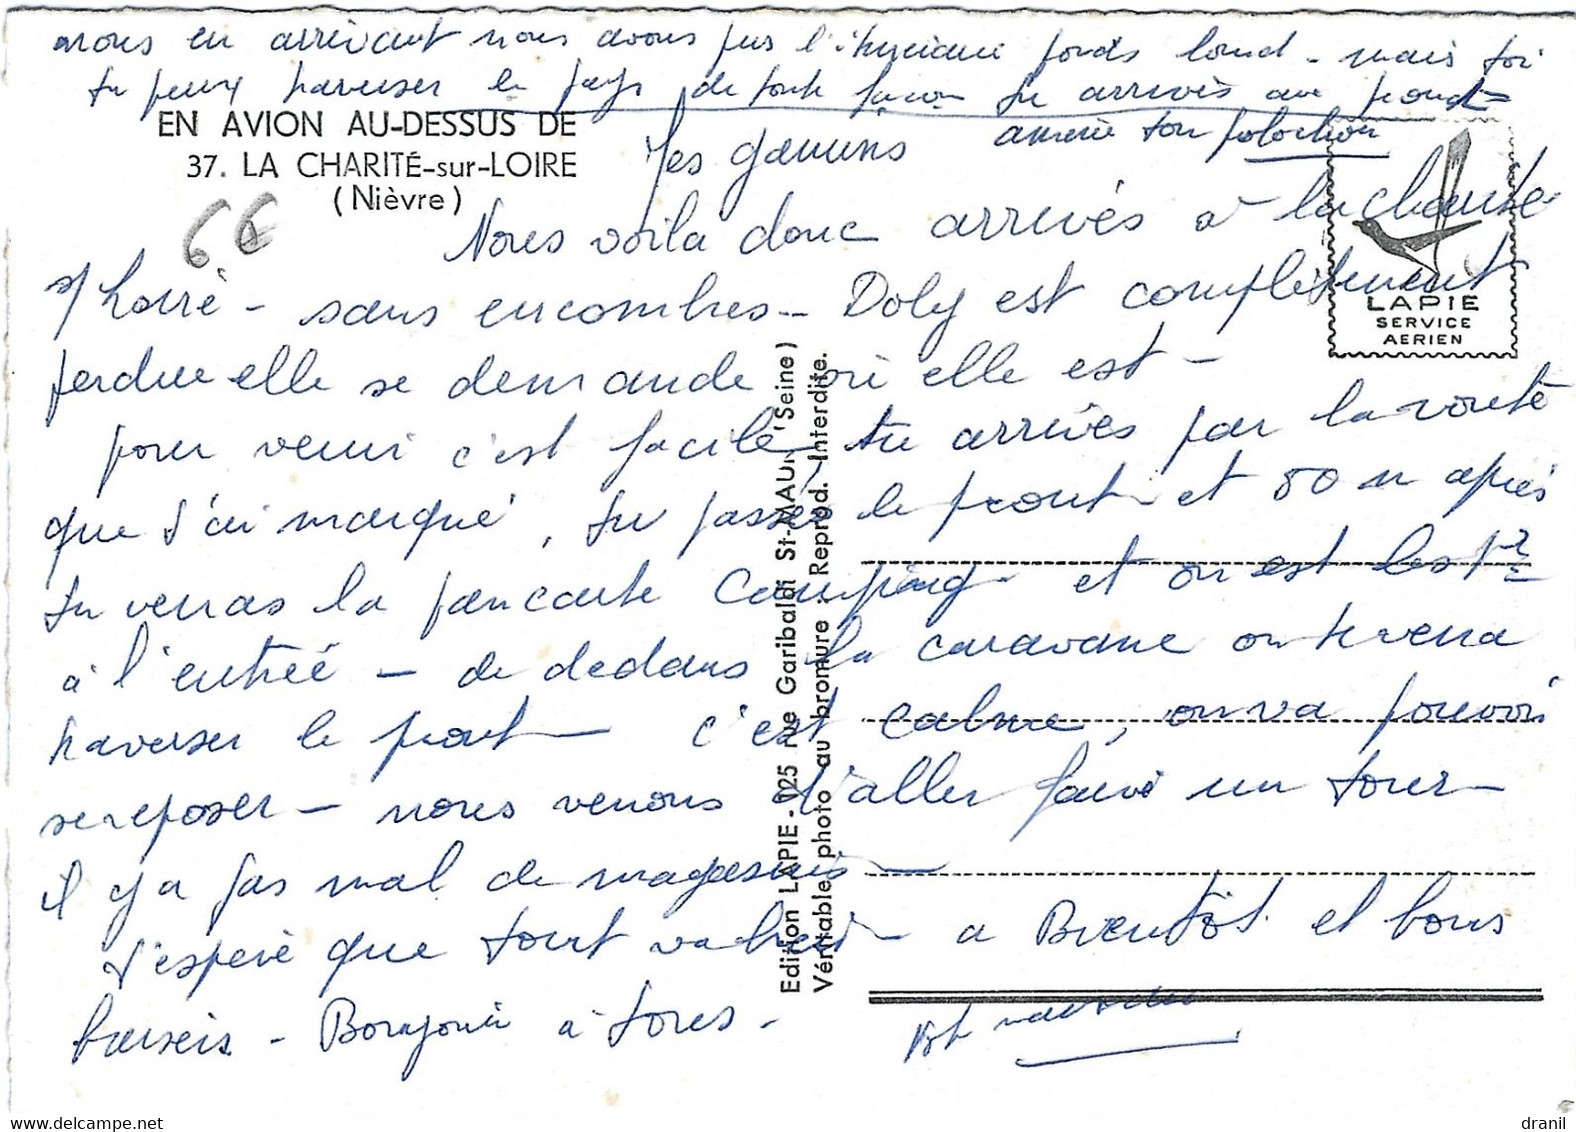 nous en arrivant nous avons pris l'itinéraire poids lourd - mais toi
tu peux traverser le pays de toute façon tu arrives au pont
amène ton polochon
EN AVION AU-DESSUS DE
37. LA CHARITÉ-sur-LOIRE
(Nièvre)
6€
LAPIE
SERVICE
AERIEN
Les gamins
Nous voila donc arrivés à la charité
s/ Loire - sans encombres - Doly est complètement
perdue elle se demande où elle est -
pour venir c'est facile, tu arrives par la route
que j'ai marqué, tu passes le pont et 50 m après
tu verras la pancarte Camping et on est les 1er
à l'entrée - de dedans la caravane on te verra
traverser le pont - c'est calme, on va pouvoir
se reposer - nous venons d'aller faire un tour -
il y a pas mal de magasins -
j'espère que tout va bien - a Bientôt et bons
baisers - Bonjour à tous -
Edition LAPIE - 125 rue Garibaldi St-MAUR (Seine)
Véritable photo au bromure : Reprod. Interdite.
www.delcampe.net
dranil